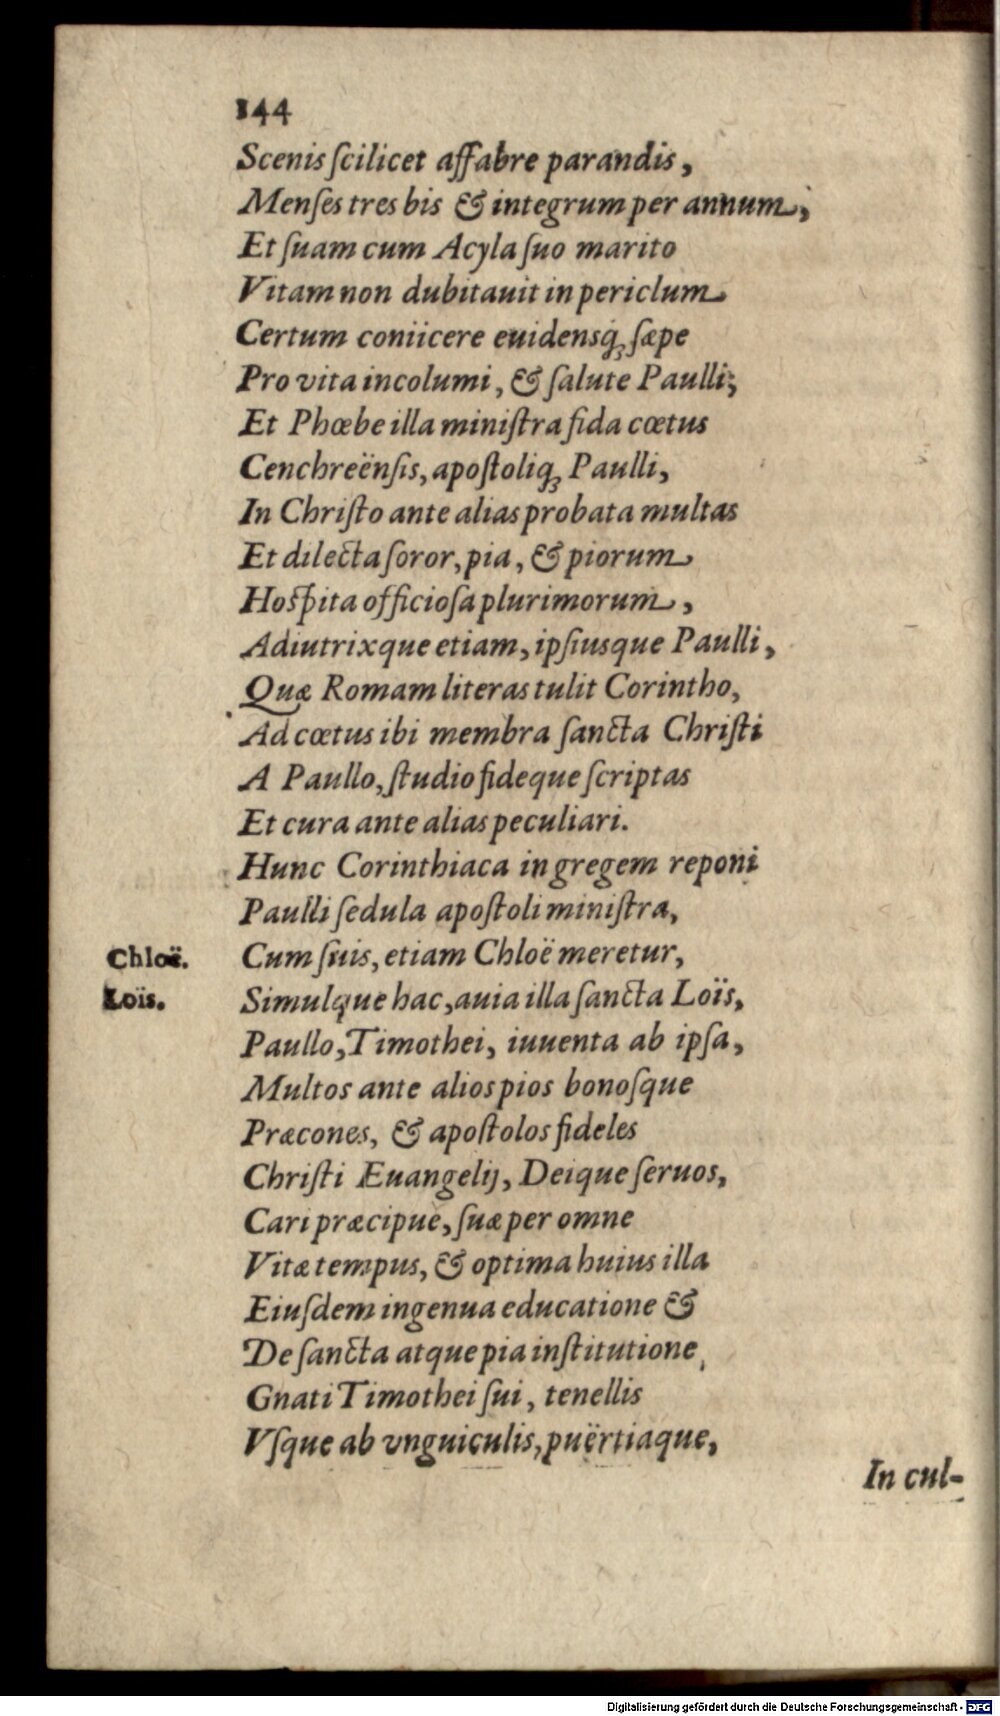 144
Scenis ſcilicet affabre parandis,
Menſes tres bis & integrum per annum,
Et ſuam cum Acyla ſuo marito
Vitam non dubitauit in periclum
Certum coniicere euidensq́ꝫ ſæpe
Pro vita incolumi, & ſalute Paulli;
Et Phœbe illa miniſtra fida cœtus
Cenchreënſis, apoſtoliqꝫ Paulli,
In Chriſto ante alias probata multas
Et dilecta ſoror, pia, & piorum
Hoſpita officioſa plurimorum,
Adiutrixque etiam, ipſiusque Paulli,
Quæ Romam literas tulit Corintho,
Ad cœtus ibi membra ſancta Chriſti
A Paullo, ſtudio fideque ſcriptas
Et cura ante alias peculiari.
Hunc Corinthiaca in gregem reponi
Paulli ſedula apoſtoli miniſtra,
Chloë. Cum ſuis, etiam Chloë meretur,
Loïs. Simulque hac, auia illa ſancta Loïs,
Paullo, Timothei, iuuenta ab ipſa,
Multos ante alios pios bonoſque
Præcones, & apoſtolos fideles
Chriſti Euangelij, Deique ſeruos,
Cari præcipue, ſuæ per omne
Vitæ tempus, & optima huius illa
Eiuſdem ingenua educatione &
De ſancta atque pia inſtitutione,
Gnati Timothei ſui, tenellis
Vſque ab vnguiculis, puërtiaque,
In cul-
Digitalisierung gefördert durch die Deutsche Forschungsgemeinschaft - DFG